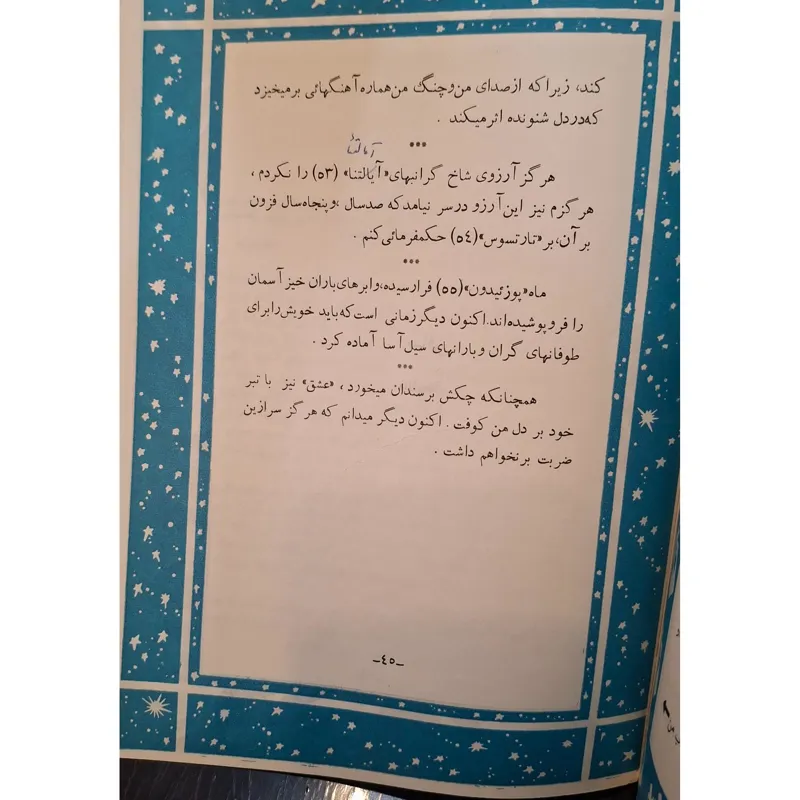 کند، زیرا که از صدای من و چنگ من هماره آهنگهائی برمیخیزد
که در دل شنونده اثر میکند .
***
آمالتئا
هرگز آرزوی شاخ گرانبهای «آیالتنا» (۵۳) را نکردم ،
هرگزم نیز این آرزو در سر نیامد که صد سال ، و پنجاه سال فزون
بر آن، بر «تارتسوس» (۵٤) حکمفرمائی کنم .
***
ماه «پوزئیدون» (۵۵) فرا رسیده، و ابرهای باران خیز آسمان
را فرو پوشیده‌اند. اکنون دیگر زمانی است که باید خویش را برای
طوفانهای گران و بارانهای سیل آسا آماده کرد .
***
همچنانکه چکش بر سندان میخورد ، «عشق» نیز با تبر
خود بر دل من کوفت . اکنون دیگر میدانم که هرگز سر ازین
ضربت بر نخواهم داشت .
-٤۵-